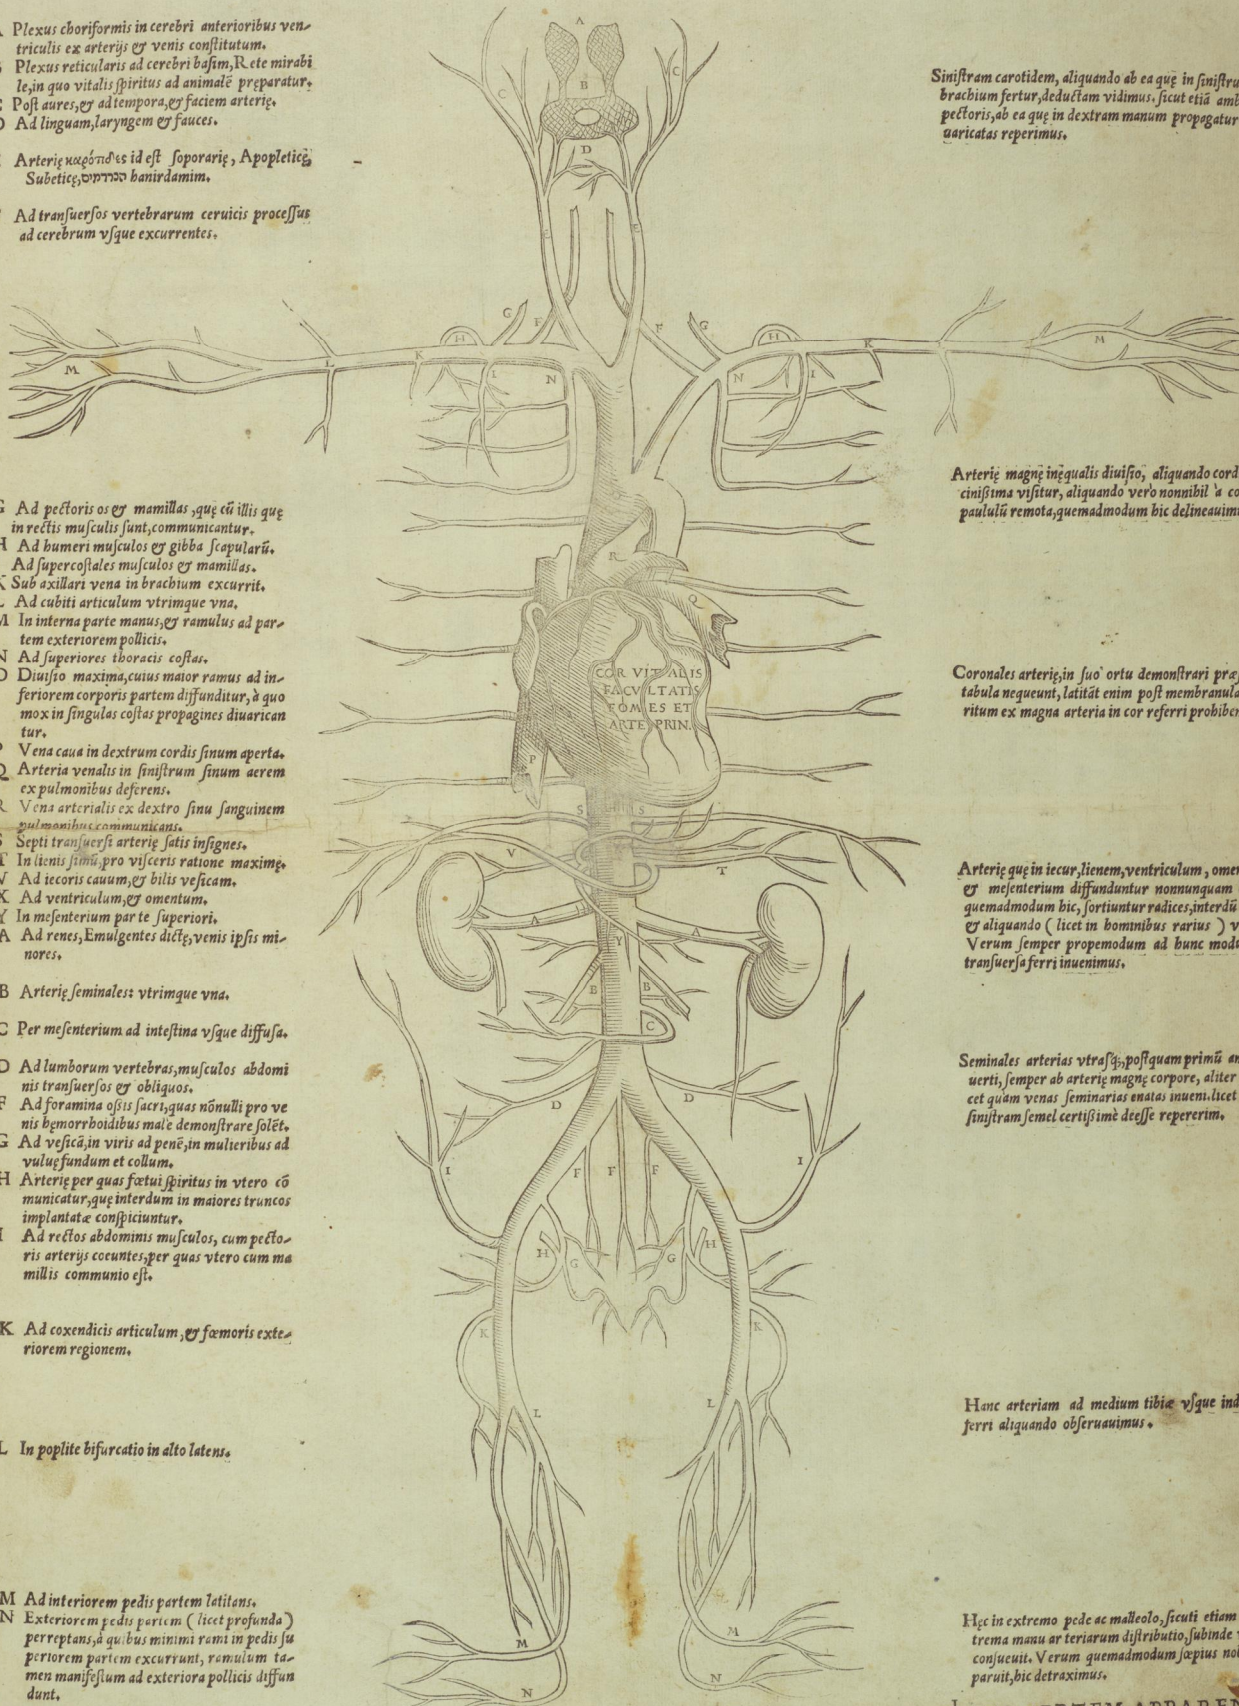 A Plexus choriformis in cerebri anterioribus ven-
triculis ex arterijs & venis conſtitutum.
Plexus reticularis ad cerebri baſim, Rete mirabi
le, in quo vitalis ſpiritus ad animalē preparatur.
C Poſt aures, & ad tempora, & faciem arterię.
D Ad linguam, laryngem & fauces.
Arterię καρότιδες id eſt ſoporarię, Apopleticę,
Subeticę, הנרדמים hanirdamim.
Ad tranſuerſos vertebrarum ceruicis proceſſus
ad cerebrum vſque excurrentes.
G Ad pectoris os & mamillas, quę cū illis quę
in rectis muſculis ſunt, communicantur.
H Ad humeri muſculos & gibba ſcapularū.
Ad ſupercoſtales muſculos & mamillas.
K Sub axillari vena in brachium excurrit.
L Ad cubiti articulum vtrimque vna.
M In interna parte manus, & ramulus ad par-
tem exteriorem pollicis.
N Ad ſuperiores thoracis coſtas.
O Diuiſio maxima, cuius maior ramus ad in-
feriorem corporis partem diffunditur, à quo
mox in ſingulas coſtas propagines diuarican
tur.
P Vena caua in dextrum cordis ſinum aperta.
Q Arteria venalis in ſiniſtrum ſinum aerem
ex pulmonibus deferens.
R Vena arterialis ex dextro ſinu ſanguinem
pulmonibus communicans.
S Septi tranſuerſi arterię ſatis inſignes.
T In lienis ſimū, pro viſceris ratione maximę.
V Ad iecoris cauum, & bilis veſicam.
X Ad ventriculum, & omentum.
Y In meſenterium parte ſuperiori.
A Ad renes, Emulgentes dictę, venis ipſis mi-
nores.
B Arterię ſeminales: vtrimque vna.
C Per meſenterium ad inteſtina vſque diffuſa.
D Ad lumborum vertebras, muſculos abdomi
nis tranſuerſos & obliquos.
F Ad foramina oſsis ſacri, quas nōnulli pro ve
nis hęmorrhoidibus male demonſtrare ſolēt.
G Ad veſicā, in viris ad penē, in mulieribus ad
vuluę fundum et collum.
H Arterię per quas fœtui ſpiritus in vtero cō
municatur, quę interdum in maiores truncos
implantatæ conſpiciuntur.
I Ad rectos abdominis muſculos, cum pecto-
ris arterijs coeuntes, per quas vtero cum ma
millis communio eſt.
K Ad coxendicis articulum, & fœmoris exte-
riorem regionem.
L In poplite bifurcatio in alto latens.
M Ad interiorem pedis partem latitans.
N Exteriorem pedis partem (licet profunda)
perreptans, à quibus minimi rami in pedis ſu
periorem partem excurrunt, ramulum ta-
men manifeſtum ad exteriora pollicis diffun
dunt.
A
C
C
B
D
E
E
G
F
F
G
H
H
K
K
L
M
M
I
N
N
I
R
Q
COR VITALIS
FACVLTATIS
FOMES ET
ARTE. PRIN.
P
S
S
V
T
A
A
Y
B
B
C
D
D
I
I
F
F
F
H
H
G
G
K
K
L
L
M
M
N
N
Siniſtram carotidem, aliquando ab ea quę in ſiniſtru
brachium fertur, deductam vidimus. ſicut etiā amb
pectoris, ab ea quę in dextram manum propagatur
uaricatas reperimus.
Arterię magnę inęqualis diuiſio, aliquando cord
cinißima viſitur, aliquando verò nonnihil à co
paululū remota, quemadmodum hic delineauim
Coronales arterię, in ſuo ortu demonſtrari præ
tabula nequeunt, latitāt enim poſt membranula
ritum ex magna arteria in cor referri prohiber
Arterię quę in iecur, lienem, ventriculum, omen
& meſenterium diffunduntur nonnunquam
quemadmodum hic, ſortiuntur radices, interdū
& aliquando (licet in hominibus rarius) v
Verum ſemper propemodum ad hunc modu
tranſuerſa ferri inuenimus.
Seminales arterias vtraſq;, poſtquam primū an
uerti, ſemper ab arterię magnę corpore, aliter
cet quam venas ſeminarias enatas inueni. licet
ſiniſtram ſemel certißimè deeſſe repererim.
Hanc arteriam ad medium tibiæ vſque ind
ferri aliquando obſeruauimus.
Hęc in extremo pede ac malleolo, ſicuti etiam
trema manu arteriarum diſtributio, ſubinde v
conſueuit. Verum quemadmodum ſæpius nob
paruit, hic detraximus.